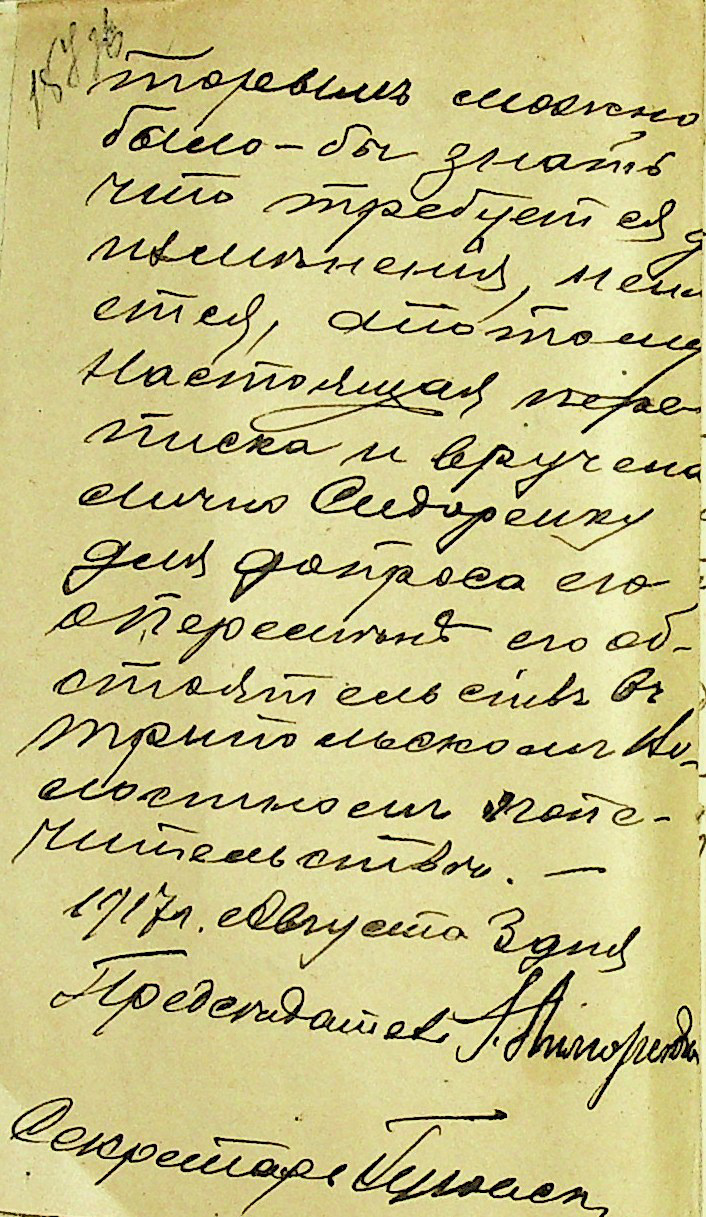 торымъ можно
было-бы знать
что требуется
изменения,
ется, а потому
настоящая пере-
писка и вручена
лично Сидоренку
для допроса его
о перемене его об-
стоятельствъ въ
Трипольскомъ во-
лостномъ попе-
чительстве. —
1917 г. Августа 3 дня
Председатель
Секретарь